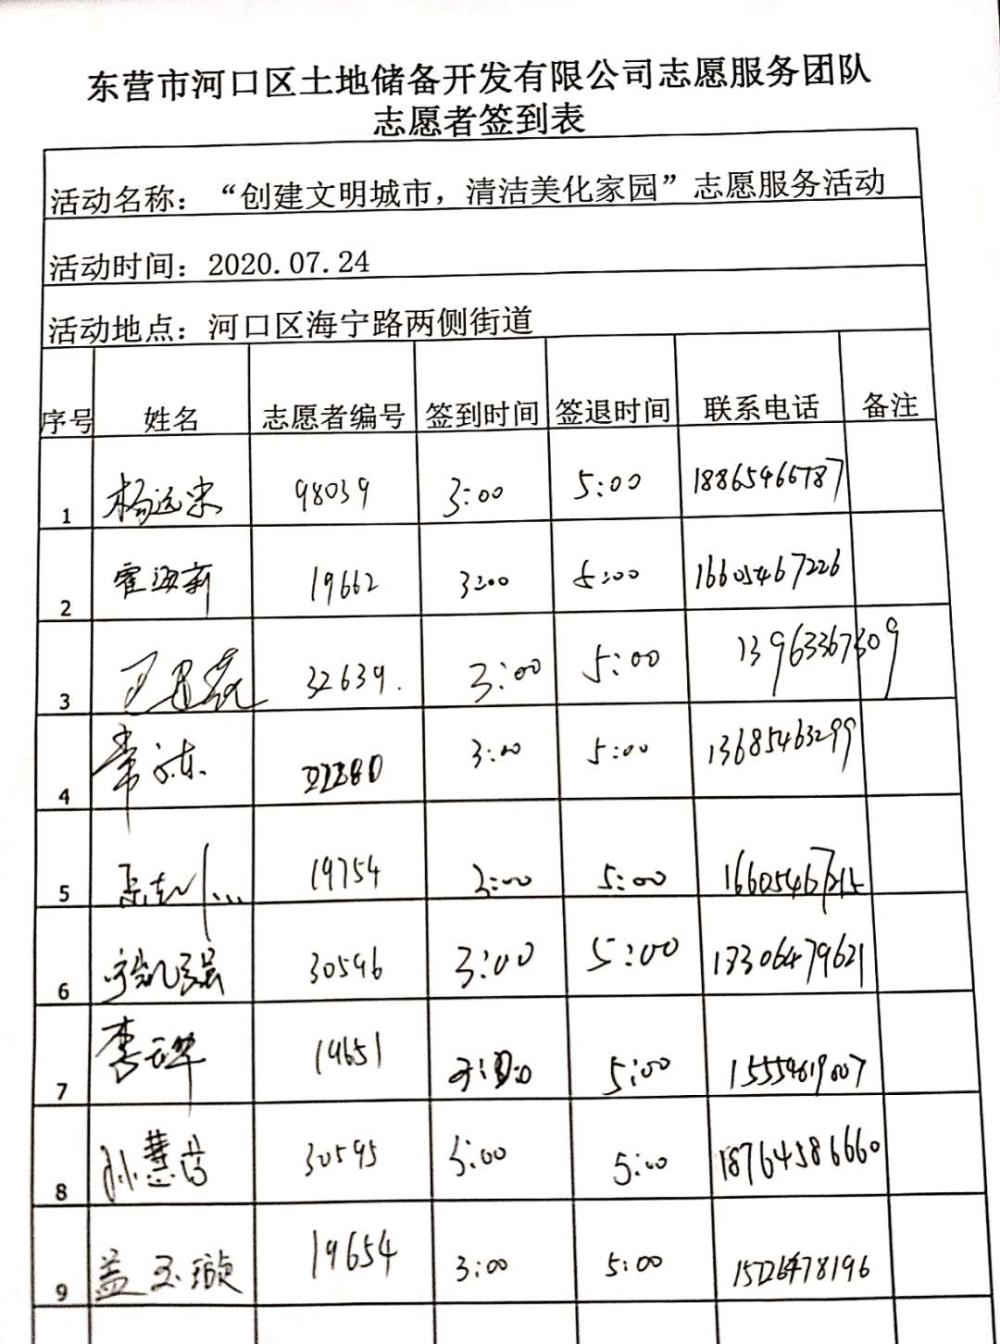 东营市河口区土地储备开发有限公司志愿服务团队
志愿者签到表
活动名称：“创建文明城市，清洁美化家园”志愿服务活动
活动时间：2020.07.24
活动地点：河口区海宁路两侧街道
序号 姓名 志愿者编号 签到时间 签退时间 联系电话 备注
1 杨远忠 98039 3:00 5:00 18865466787
2 霍海新 19662 3:00 5:00 16605467226
3 32639. 3:00 5:00 13963367309
4 常 3:00 5:00 13685463299
5 19754 3:00 5:00
6 30596 3:00 5:00 13306479621
7 李 19651 5:00
8 孙慧 30595 3:00 5:00 18764586660
9 盖玉璇 19654 3:00 5:00